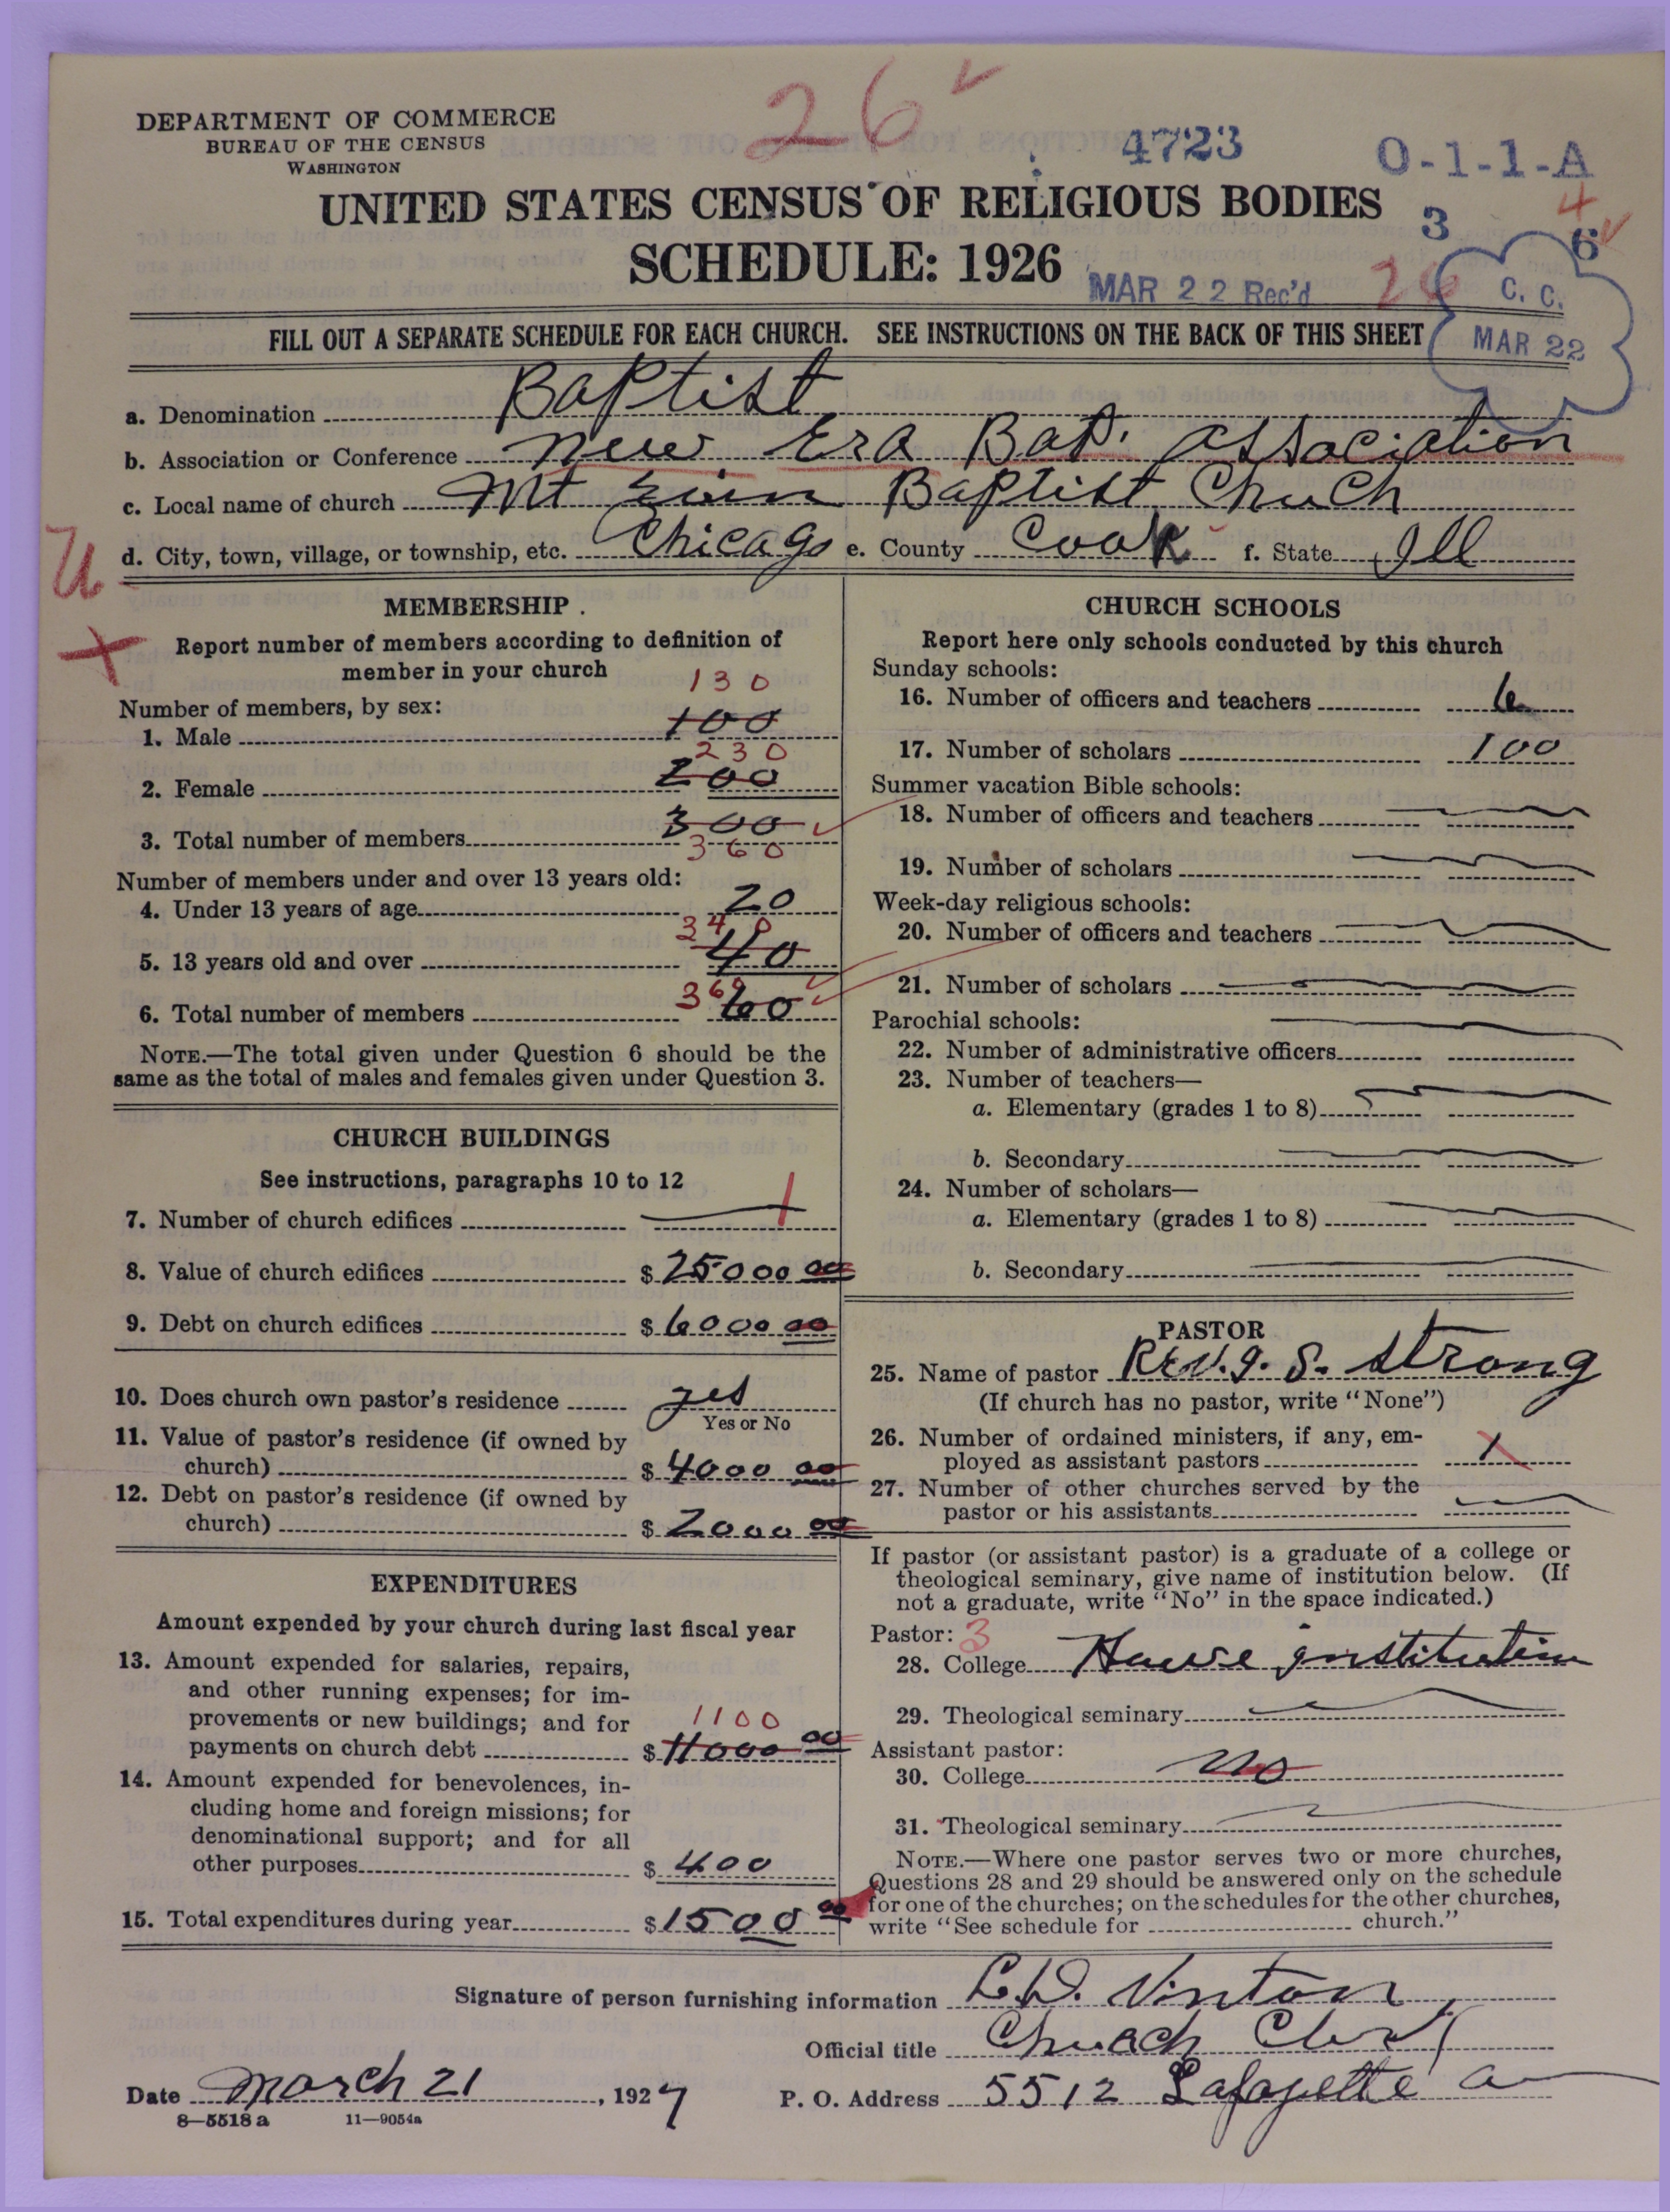 26 ✓
DEPARTMENT OF COMMERCE
BUREAU OF THE CENSUS
WASHINGTON
4723
O-1-1-A
UNITED STATES CENSUS OF RELIGIOUS BODIES
3
4
6
SCHEDULE: 1926
MAR 22 Rec'd
26
C. C.
MAR 22
FILL OUT A SEPARATE SCHEDULE FOR EACH CHURCH. SEE INSTRUCTIONS ON THE BACK OF THIS SHEET
a. Denomination Baptist
b. Association or Conference New Era Bap. Association
c. Local name of church Mt Baptist Chuch
d. City, town, village, or township, etc. Chicago e. County Cook f. State Ill
U
MEMBERSHIP
Report number of members according to definition of
member in your church
Number of members, by sex:
130
1. Male 100
230
2. Female 200
3. Total number of members 300
360
Number of members under and over 13 years old:
4. Under 13 years of age 20
340
5. 13 years old and over 40
360
6. Total number of members 60
NOTE.—The total given under Question 6 should be the
same as the total of males and females given under Question 3.
CHURCH BUILDINGS
See instructions, paragraphs 10 to 12
7. Number of church edifices 1
8. Value of church edifices $ 25000 00
9. Debt on church edifices $ 6000 00
10. Does church own pastor's residence yes
Yes or No
11. Value of pastor's residence (if owned by
church) $ 4000 00
12. Debt on pastor's residence (if owned by
church) $ 2000 00
EXPENDITURES
Amount expended by your church during last fiscal year
13. Amount expended for salaries, repairs,
and other running expenses; for im-
provements or new buildings; and for
1100
payments on church debt $ 11000 00
14. Amount expended for benevolences, in-
cluding home and foreign missions; for
denominational support; and for all
other purposes $ 400
15. Total expenditures during year $ 1500 00
CHURCH SCHOOLS
Report here only schools conducted by this church
Sunday schools:
16. Number of officers and teachers 6
17. Number of scholars 100
Summer vacation Bible schools:
18. Number of officers and teachers
19. Number of scholars
Week-day religious schools:
20. Number of officers and teachers
21. Number of scholars
Parochial schools:
22. Number of administrative officers
23. Number of teachers—
a. Elementary (grades 1 to 8)
b. Secondary
24. Number of scholars—
a. Elementary (grades 1 to 8)
b. Secondary
PASTOR
25. Name of pastor Rev. J. S. Strong
(If church has no pastor, write "None")
26. Number of ordained ministers, if any, em-
ployed as assistant pastors 1
27. Number of other churches served by the
pastor or his assistants
If pastor (or assistant pastor) is a graduate of a college or
theological seminary, give name of institution below. (If
not a graduate, write "No" in the space indicated.)
Pastor: 3
28. College Howe institution
29. Theological seminary
Assistant pastor:
30. College no
31. Theological seminary
NOTE.—Where one pastor serves two or more churches,
Questions 28 and 29 should be answered only on the schedule
for one of the churches; on the schedules for the other churches,
write "See schedule for church."
Signature of person furnishing information C. D. Vinton
Official title Church Clerk
Date March 21, 1927
P. O. Address 5512 Lafayette a
8—5518 a 11—9054a